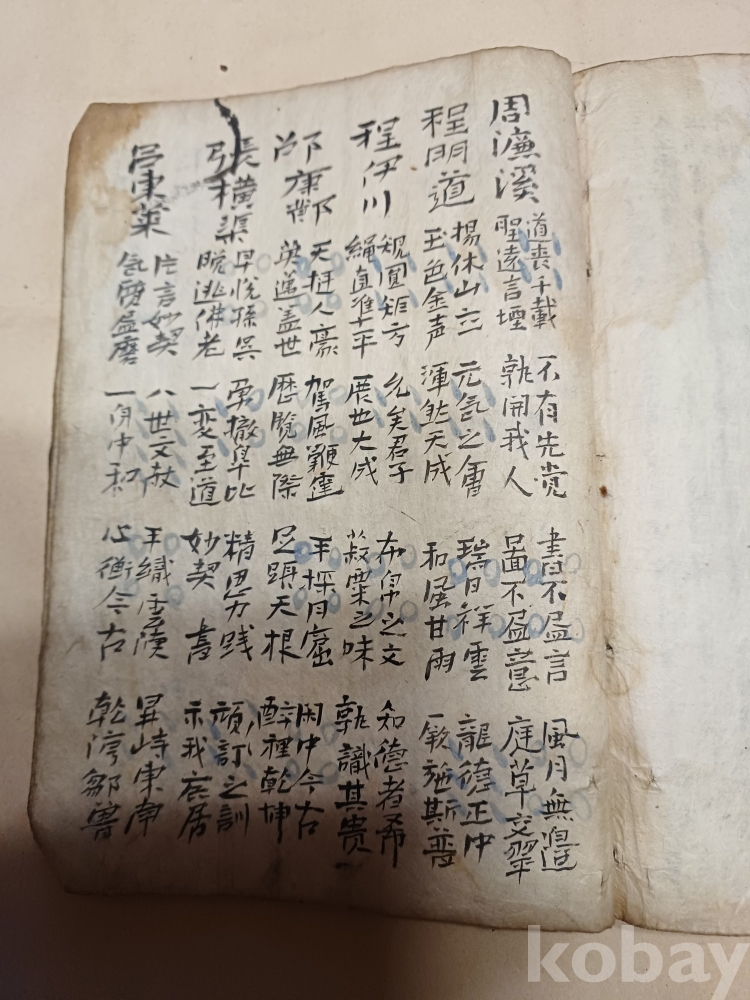 周濂溪
道丧千載
聖遠言堙
不有先覚
孰開我人
書不盡言
圖不盡意
風月無邉
庭草交翠
程明道
揚休山立
玉色金声
元気之會
渾然天成
瑞日祥雲
和風甘雨
龍德正中
厥施斯普
程伊川
規圓矩方
繩直準平
允矣君子
展也大成
布帛之文
菽粟之味
知德者希
孰識其贵
邵康節
天挺人豪
英邁盖世
駕風鞭霆
歷覧無際
手探月窟
足躡天根
閑中今古
醉裡乾坤
張横渠
早悦孫吳
晚逃佛老
勇撤皐比
一变至道
精思力践
妙契 書
頑訂之訓
示我広居
吕東莱
片言妙契
気質盡磨
八世文献
一身中和
手織雲漢
心衡今古
峙東南
乾淳鄒魯
kobay